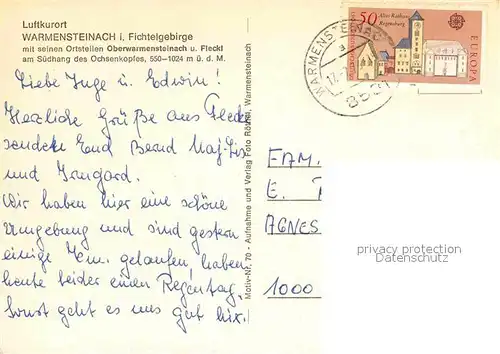 Luftkurort
WARMENSTEINACH i. Fichtelgebirge
mit seinen Ortsteilen Oberwarmensteinach u. Fleckl
am Südhang des Ochsenkopfes, 550–1024 m ü. d. M.
Liebe Inge u. Edwin!
Herzliche Grüße aus Fleckl
senden Euch Bernd
und Irmgard.
Wir haben hier eine schöne
Umgebung und sind gestern
einige km. gelaufen, haben
heute leider einen Regentag.
Sonst geht es uns gut hier.
Motiv-Nr. 70 - Aufnahme und Verlag Foto Warmensteinach
WARMENSTEINACH
50
Altes Rathaus
Regensburg
EUROPA
FAM.
E.
AGNES
1000
privacy protection
watermark